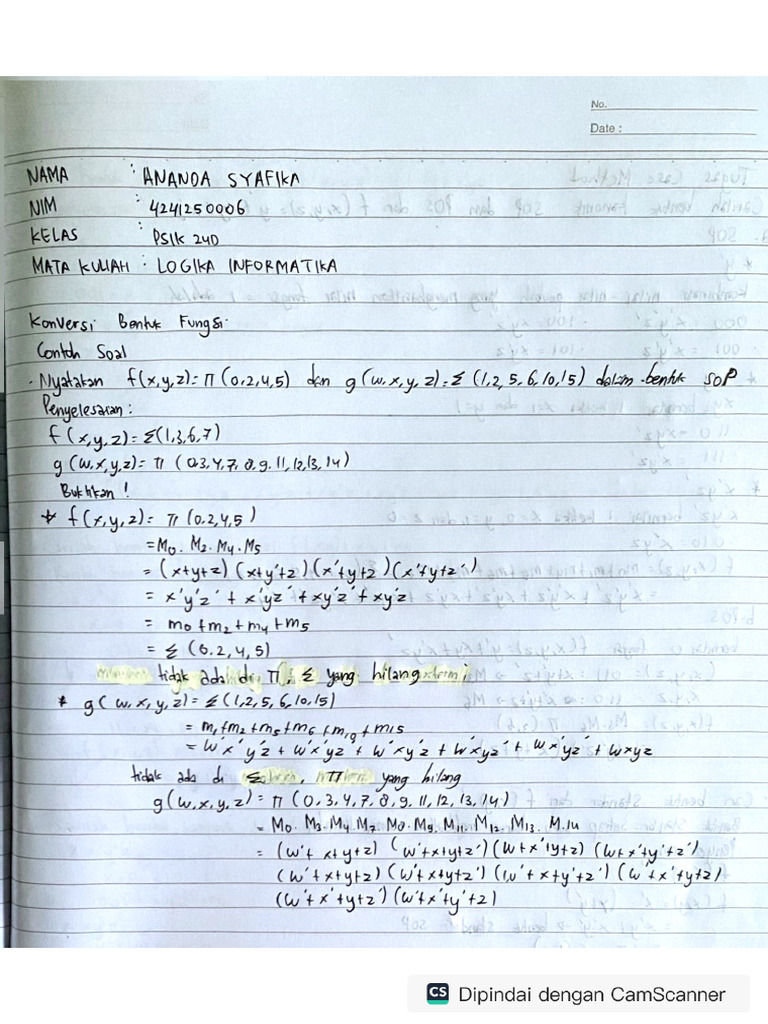 No.
Date :
NAMA : ANANDA SYAFIKA
NIM : 4241250006
KELAS : PSIK 24D
MATA KULIAH : LOGIKA INFORMATIKA
Konversi Bentuk Fungsi
Contoh Soal
· Nyatakan f(x,y,z)= π (0,2,4,5) dan g(w,x,y,z)= Σ (1,2,5,6,10,15) dalam bentuk SOP
Penyelesaian :
f(x,y,z)=Σ(1,3,6,7)
g(w,x,y,z)= π (0,3,4,7,8,9,11,12,13,14)
Buktikan !
* f(x,y,z)= π (0,2,4,5)
= M0. M2. M4. M5
= (x+y+z) (x+y'+z) (x'+y+z) (x'+y+z')
= x'y'z' + x'yz' + xy'z' + xy'z
= m0 + m2 + m4 + m5
= Σ (0,2,4,5)
tidak ada di π, Σ yang hilang
* g(w,x,y,z)= Σ (1,2,5,6,10,15)
= m1+m2+m5+m6+m10+m15
= w'x'y'z + w'x'yz' + w'xy'z + w'xyz' + wx'yz' + wxyz
tidak ada di Σ, π yang hilang
g(w,x,y,z)= π (0,3,4,7,8,9,11,12,13,14)
= M0. M3. M4. M7. M8. M9. M11. M12. M13. M14
= (w'+x+y+z) (w'+x+y+z') (w+x'+y+z) (w+x'+y'+z')
(w'+x+y+z) (w'+x+y+z') (w'+x+y'+z') (w'+x'+y+z)
(w'+x'+y+z') (w'+x'+y'+z)
CS Dipindai dengan CamScanner